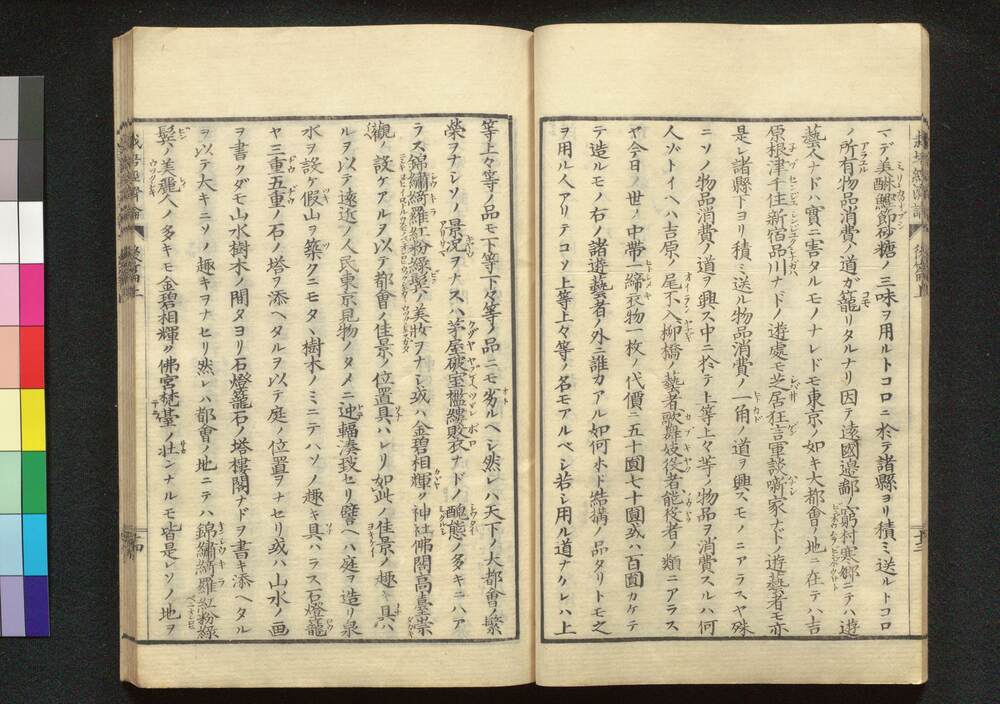 マデ美醂鰹節砂糖ノ三味ヲ用ルトコロニ於テ諸縣ヨリ積ミ送ルトコロ
ノ所有物品消費ノ道ガ籠リタルナリ因テ遠國邉鄙ノ窮村寒郷ニテハ遊
藝人ナドハ實ニ害タルモノナレドモ東京ノ如キ大都會ノ地ニ在テハ吉
原根津千住新宿品川ナドノ遊處モ芝居狂言軍談噺家ナドノ遊藝者モ亦
是レ諸縣下ヨリ積ミ送ル物品消費ノ一角ノ道ヲ興スモノニアラスヤ殊
ニソノ物品消費ノ道ヲ興ス中ニ於テ上等上々等ノ物品ヲ消費スルハ何
人ゾトイヘハ吉原ノ尾不入柳橋ノ藝者歌舞妓役者能役者ノ類ニアラス
ヤ今日ノ世ノ中帯一締衣物一枚ノ代價ニ五十圓七十圓或ハ百圓カケテ
テ造ルモノ右ノ諸遊藝者ノ外ニ誰カアル如何ホド結搆ノ品タリトモ之
ヲ用ル人アリテコソ上等上々等ノ名モアルベシ若シ用ル道ナクレハ上
十三
等上々等ノ品モ下等下々等ノ品ニモ劣ルヘシ然レハ天下ノ大都會ノ繁
榮ヲナシソノ景况ヲナスハ茅屋破室襤縷敗衣ナドノ醜態ノ多キニハア
ラス錦繡綺羅紅粉綠髮ノ美妝ヲナシ或ハ金碧相輝ク神社佛閣高臺崇
觀ノ設ケアルヲ以テ都會ノ佳景ノ位置具ハレリ如此ノ佳景ノ趣キ具ハ
ルヲ以テ遠近ノ人民東京見物ノタメニ迯輻湊抜セリ譬ヘハ庭ヲ造リ泉
水ヲ設ケ假山ヲ築クニモタヽ樹木ノミニテハソノ趣キ具ハラス石燈籠
ヤ三重五重ノ石ノ塔ヲ添ヘタルヲ以テ庭ノ位置ヲナセリ或ハ山水ノ画
ヲ書クダモ山水樹木ノ間タヨリ石燈籠石ノ塔樓閣ナドヲ書キ添ヘタル
ヲ以テ大キニソノ趣キヲナセリ然レハ都會ノ地ニテハ錦繡綺羅紅粉綠
髮ノ美麗人ノ多キモ金碧相輝ク佛宮梵臺ノ壮ンナルモ皆是レソノ地ヲ
十四